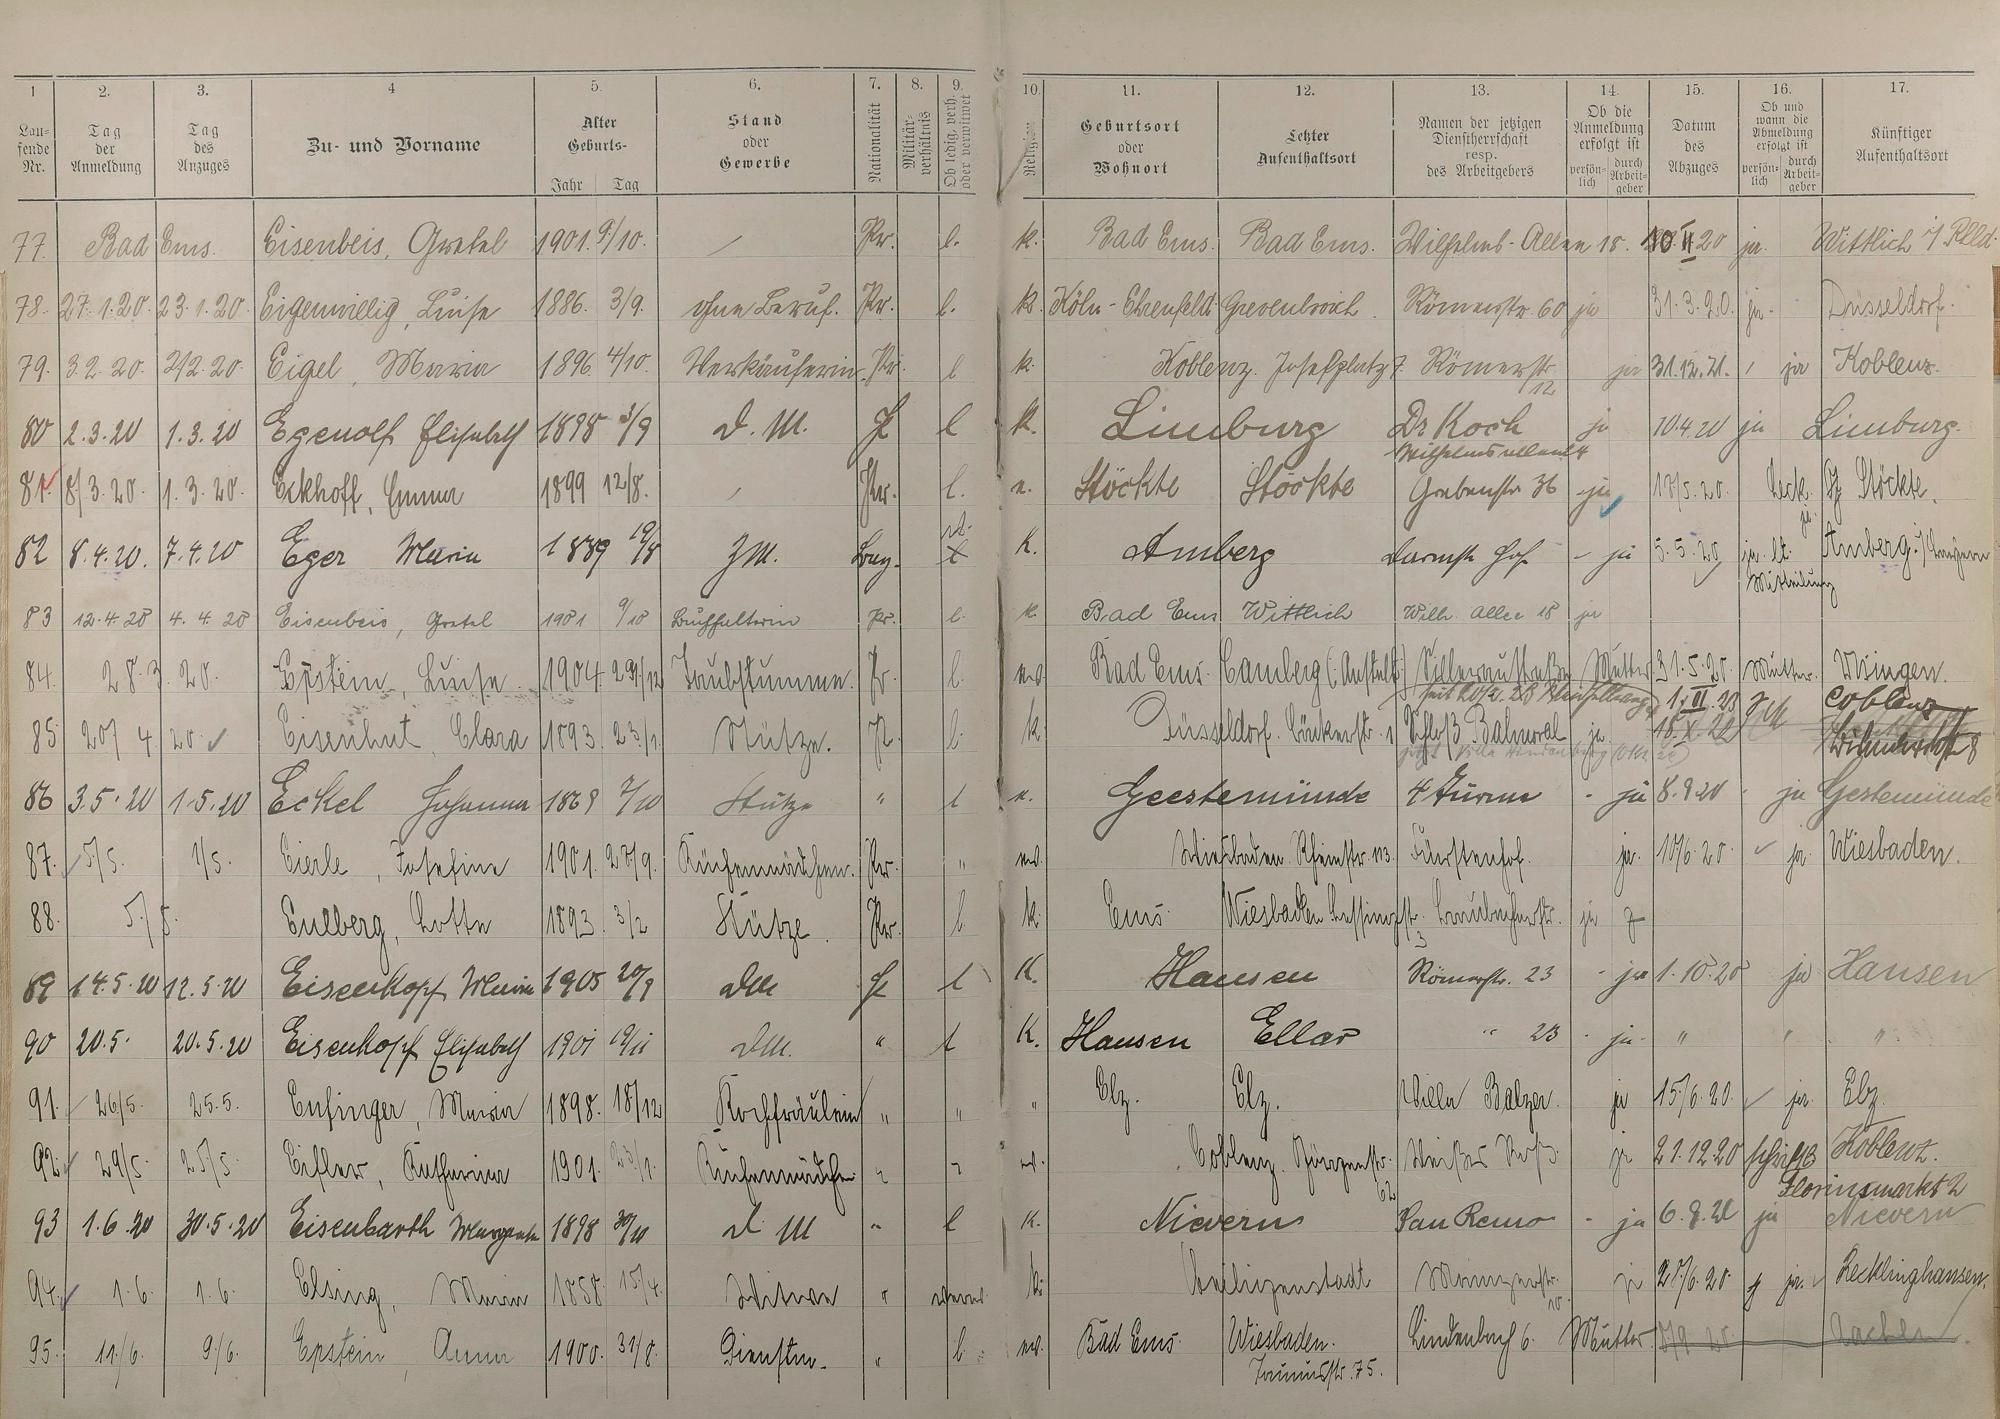 1 2. 3. 4 5. 6. 7. 8. 9. 10. 11. 12. 13. 14. 15. 16. 17.
Lau-
fende
Nr.
Tag
der
Anmeldung
Tag
des
Anzuges
Zu- und Vorname
Alter
Geburts-
Jahr Tag
Stand
oder
Gewerbe
Nationalität
Militär-
verhältnis
Ob ledig, verh.
oder verwitwet
Religion
Geburtsort
oder
Wohnort
Letzter
Aufenthaltsort
Namen der jetzigen
Dienstherrschaft
resp.
des Arbeitgebers
Ob die
Anmeldung
erfolgt ist
persön-
lich
durch
Arbeit-
geber
Datum
des
Abzuges
Ob und
wann die
Abmeldung
erfolgt ist
persön-
lich
durch
Arbeit-
geber
Künftiger
Aufenthaltsort
77. Bad Ems. Eisenbeis, Gretel 1901. 9/10. Pr. l. k. Bad Ems. Bad Ems. Wilhelms-Allee 18. 10 II 20 ja. Wittlich i/ Rlld.
78. 27.1.20. 23.1.20. Eigenwillig, Luise 1886. 3/9. ohne Beruf. Pr. l. k. Köln-Ehrenfeld Grevenbroich. Römerstr. 60 ja 31.3.20. ja. Düsseldorf.
79. 3.2.20. 2/2.20. Eigel, Maria 1896. 4/10. Verkäuferin Pr. l k. Koblenz. Josefplatz 7. Römerstr. 12 ja 31.12.21. ja Koblenz.
80 2.3.20 1.3.20 Egenolf Elisabeth 1898 3/9 d. M. l k. Limburg Dr Koch ja 10.4.20 ja Limburg.
Wilhelmsallee 4
81. 8/3.20. 1.3.20. Eckhoff, Emma 1899 12/8. Pr. l. e. Stöckte Stöckte Grabenstr. 36 ja Stöckte.
82 8.4.20. 7.4.20 Eger Maria 1889 19/8 ZM. Bay. K. Amberg Darmst. Hof - ja 5.5.20 ja lt. Amberg
Mitteilung
83 12.4.20 4.4.20 Eisenbeis, Gretel 1901 9/10 Buchhalterin Pr. l. k. Bad Ems Wittlich Wilh. Allee 18 ja
84. 28.3.20. Epstein, Luise 1904 29/12 Taubstumme. Pr. l. Bad Ems. Camberg (Anstalt) Mutter 31.5.20. Mutter. Usingen.
1. III. 23 Coblenz
85 20/4.20. Eisenhut, Clara 1893. 23/1. Stütze. P. l. k. Düsseldorf. Schloß Balmoral ja.
86 3.5.20 1.5.20 Eckel Johanna 1869 7/10 Stütze " l e. Geestemünde 4 Türme - ja 8.9.20 ja Gestemünde
87. 5/5. 1/5. Eierle, Josefine 1901. 27/9. Küchenmädchen. Pr. " Wiesbaden Rheinstr. 113. Fürstenhof. ja. 10/6.20. ja Wiesbaden.
88. 5/5. Eulberg, Lotte 1893. 3/2 Stütze. Pr. l. k. Ems. Wiesbaden Lessingstr. 3 ja
89 14.5.20 12.5.20 Eisenkopf Maria 1905 20/9 dM l K. Hausen Römerstr. 23 - ja 1.10.20 ja Hausen
90 20.5. 20.5.20 Eisenkopf Elisabeth 1901 19/11 dM. " l K. Hausen Ellar " 23 - ja. " " "
91. 26/5. 25.5. Enfinger, Maria 1898. 18/12 Kochfräulein " " " Elz. Elz. Villa Balzer. ja 15/6.20. ja. Elz.
92. 29/5. 25/5. Eifler, Katharina 1901. 23/1. Küchenmädchen Coblenz. 62 Weißes Roß. ja 21.12.20 schriftl. Koblenz.
Florinsmarkt 2
93 1.6.20 30.5.20 Eisenbarth Margarete 1898 30/10 d. M " l k. Nievern San Remo - ja 6.9.20 ja Nievern
94. 1.6. 1.6. Elsing, Maria 1858. 15/4. Witwe " verw. k. Heiligenstadt ja 28/6.20. ja. Recklinghausen.
95. 11/6. 9/6. Epstein, Anna 1900. 31/8. Dienstm. " l. Bad Ems. Wiesbaden. Lindenbach 6. Mutter Aachen
Taunusstr. 75.